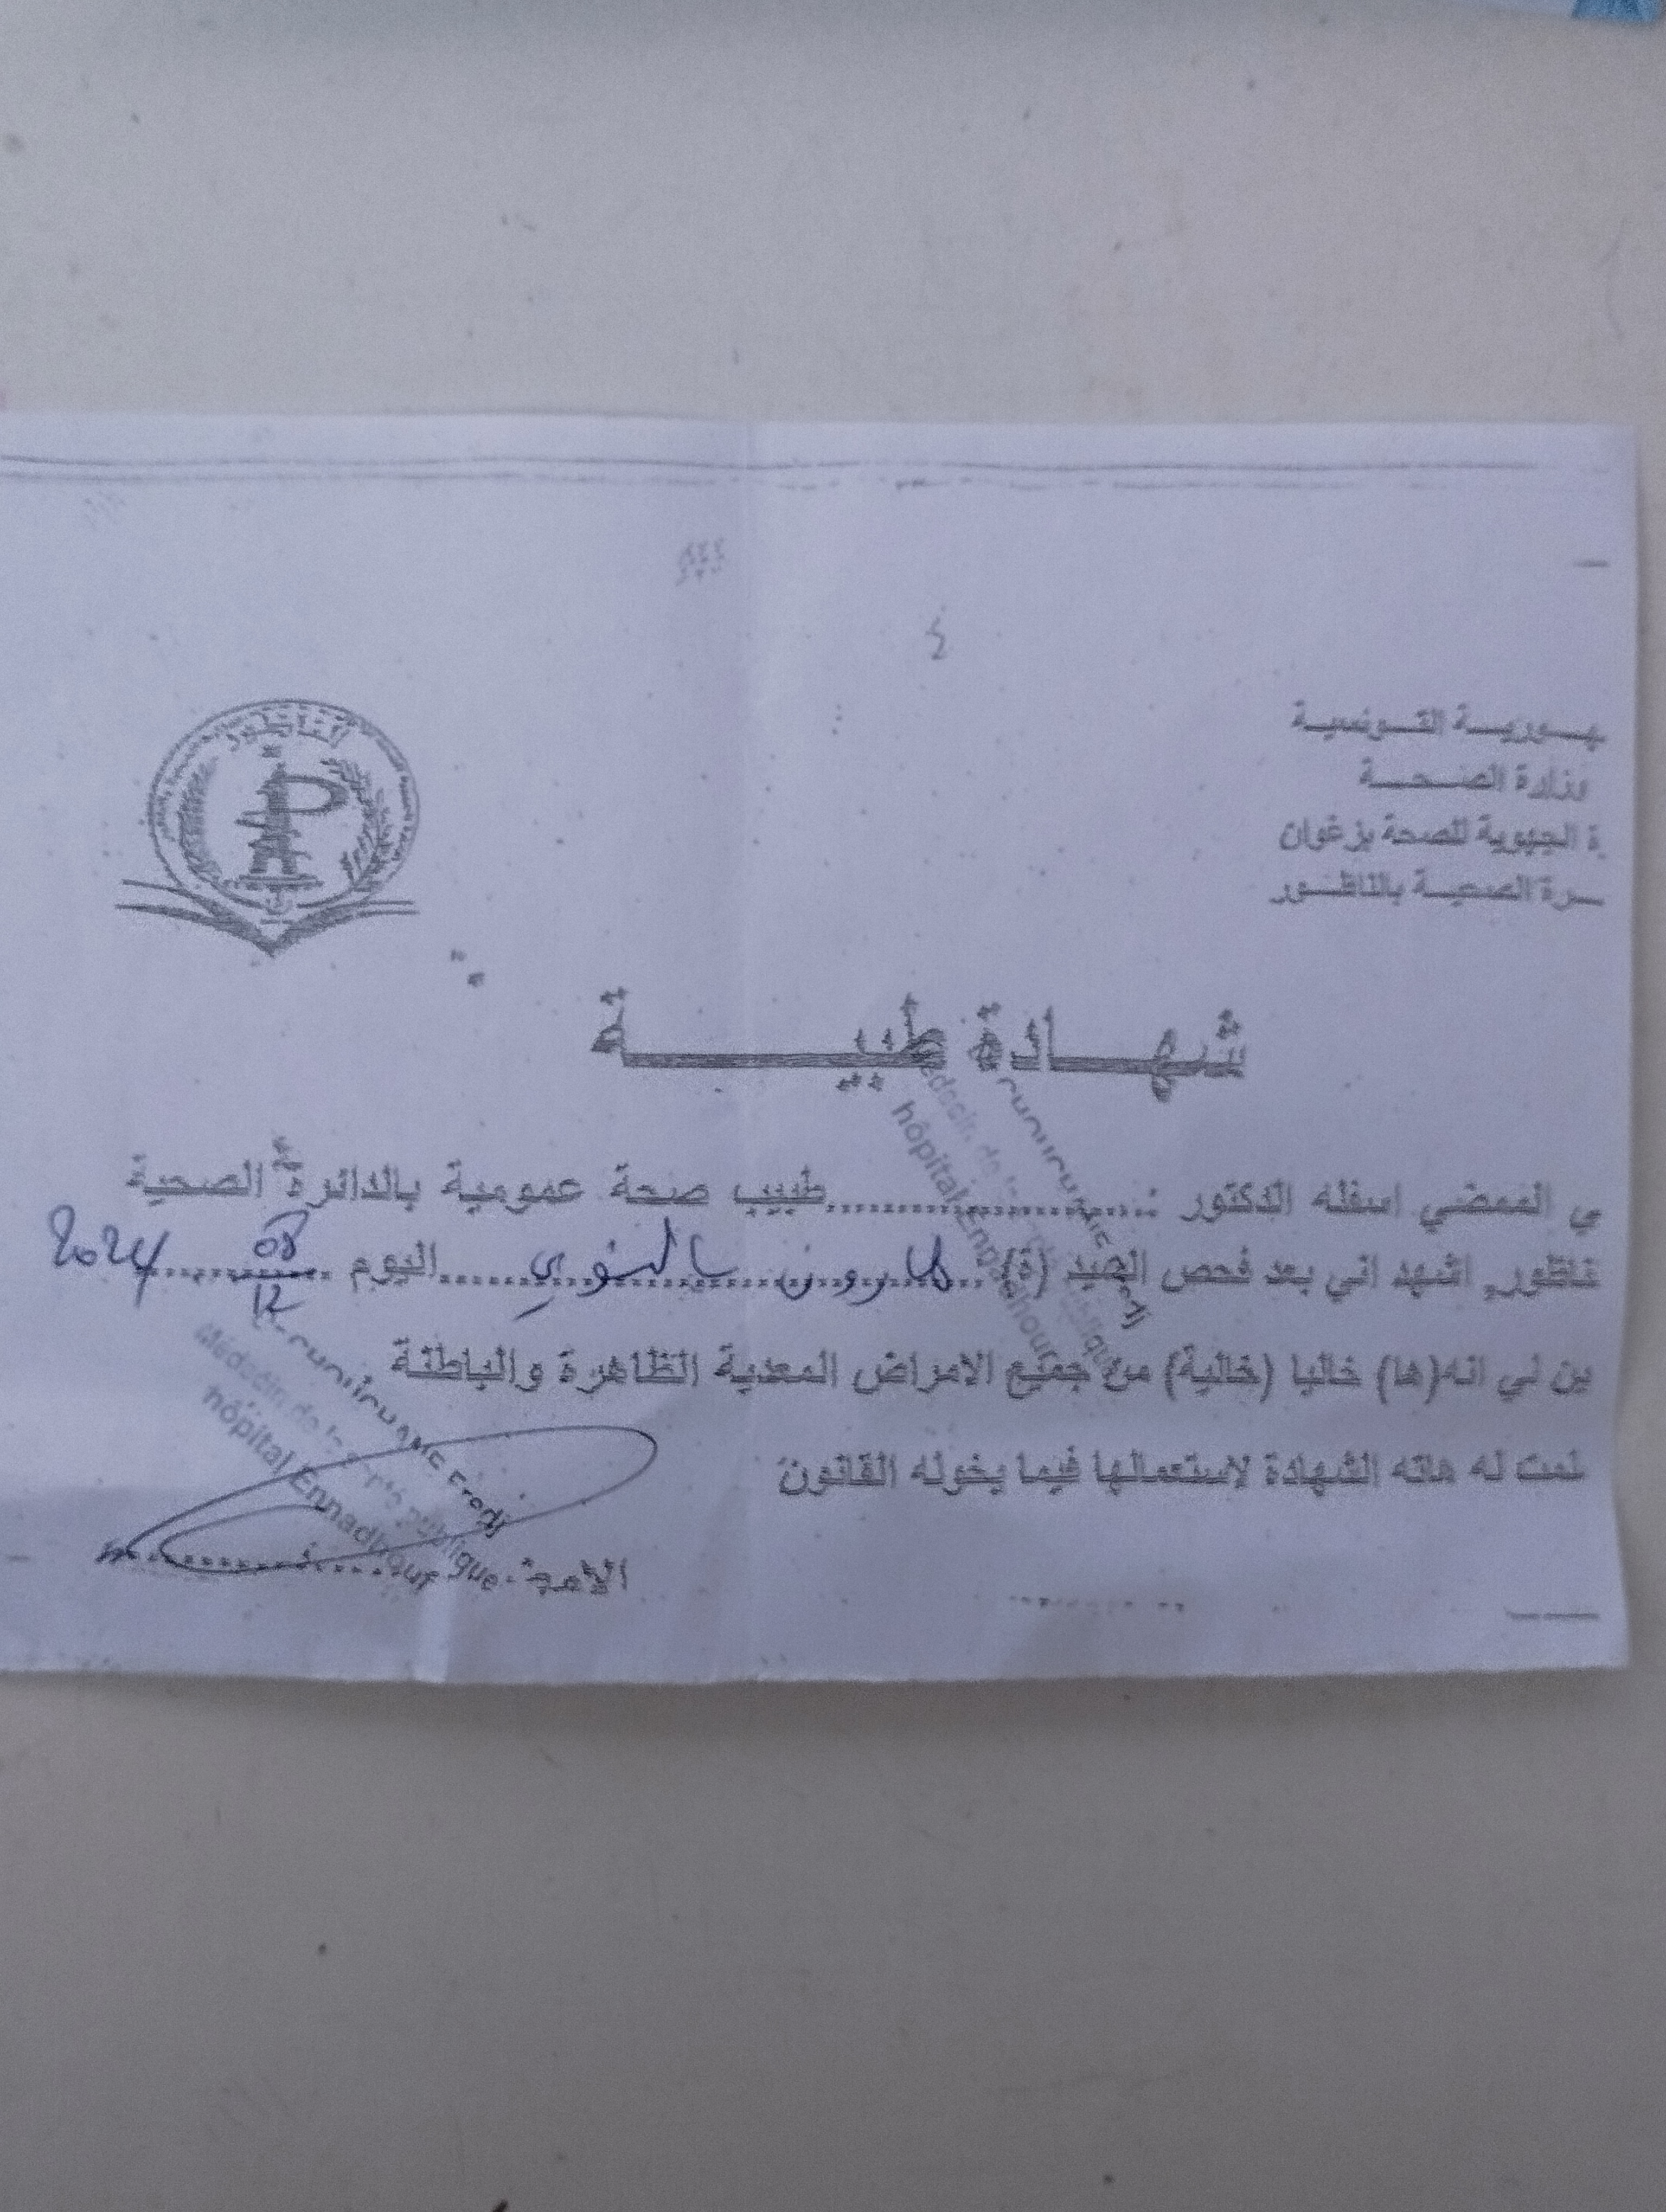 ـهـوريـة التـونسيـة
وزارة الصـحـة
ة الجهوية للصحة بزغوان
ـرة الصحيـة بالناظـور
الناظور
شهـادة طبيـة
ي الممضي اسفله الدكتور :..................طبيب صحة عمومية بالدائرة الصحية
ناظور, اشهد اني بعد فحص السيد (ة) هارون بالنوي اليوم 08/12 2024
ين لي انه(ها) خاليا (خالية) من جميع الامراض المعدية الظاهرة والباطنة
لمت له هاته الشهادة لاستعمالها فيما يخوله القانون
الامضـ
Médecin de la santé publique
hôpital Ennadhour
Médecin de la santé publique
hôpital Ennadhour